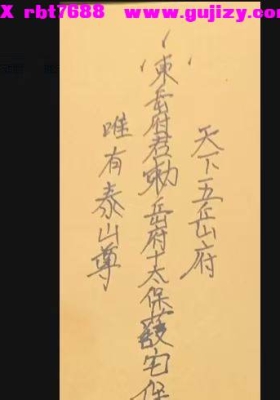 X rbt7688 www.gujizy.com
天下五岳府
東岳府君勅岳府十太保護宅保
唯有泰山尊